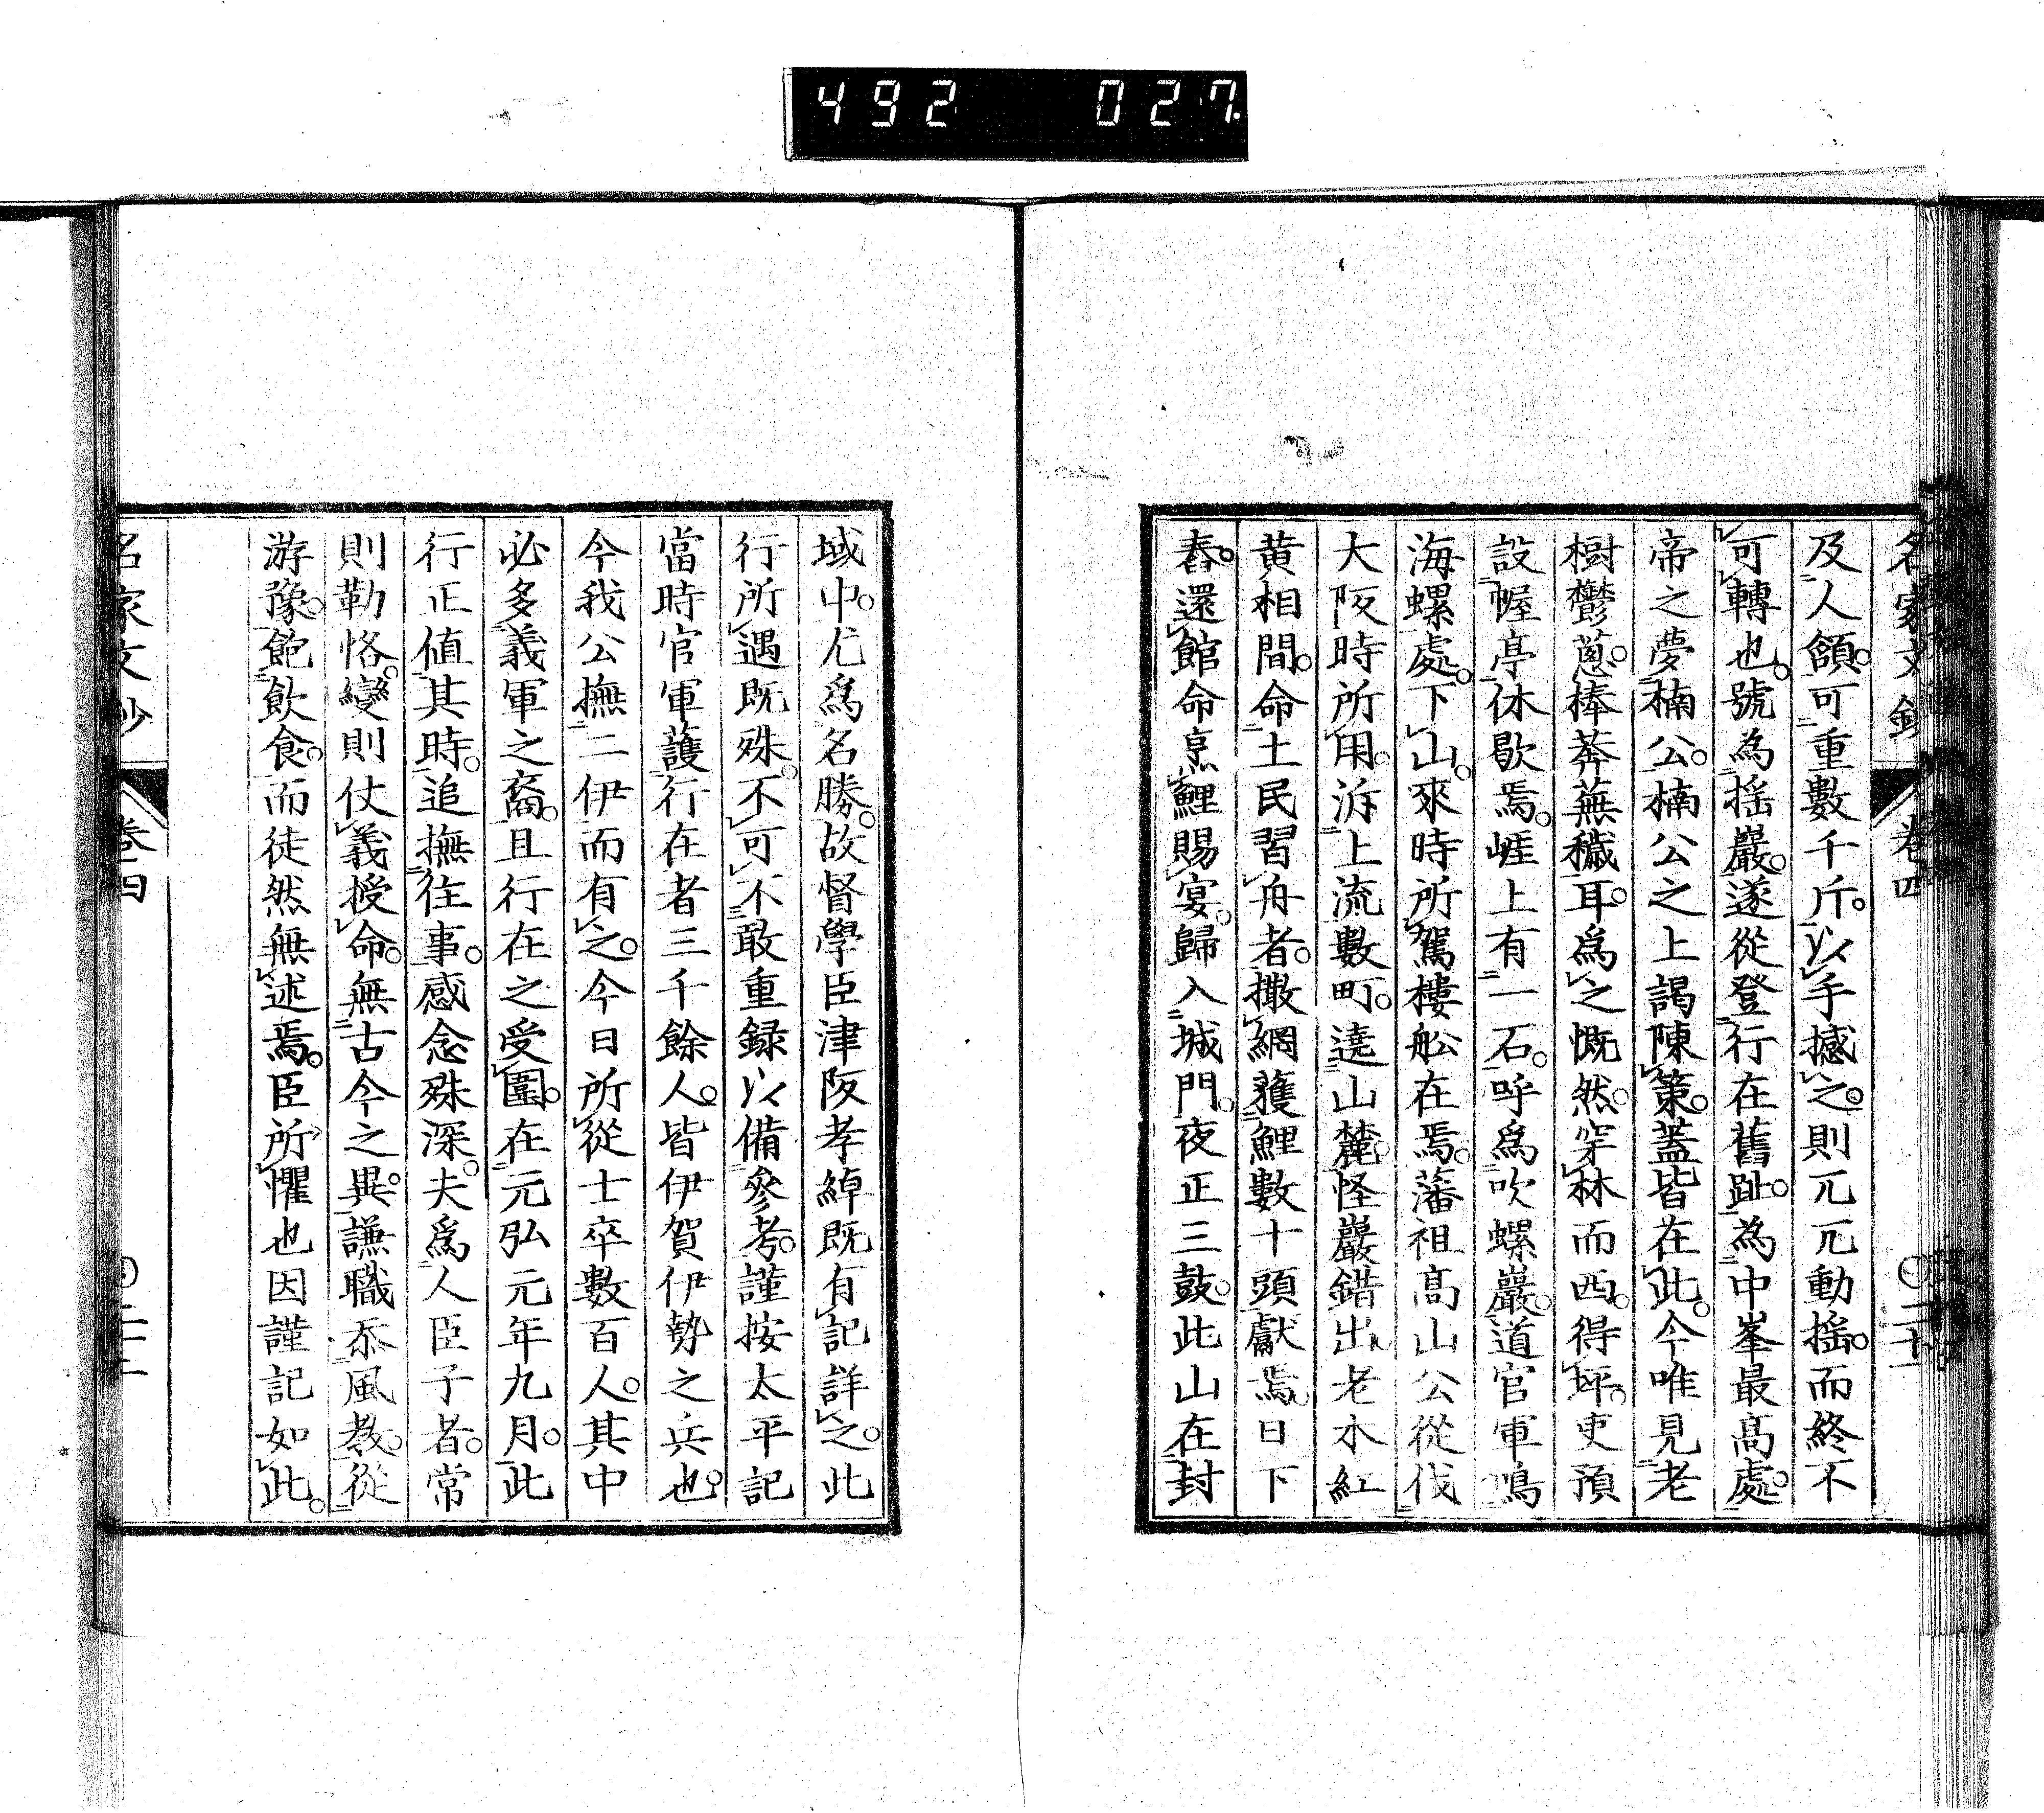 492 027
名家文鈔 卷四 二十一
及人頷。可重數千斤。以手撼之。則兀兀動搖。而終不
可轉也。號為搖巖。遂從登行在舊趾。為中峯最高處。
帝之夢楠公。楠公之上謁陳策。蓋皆在此。今唯見老
樹鬱蔥。榛莽蕪穢耳。爲之慨然。穿林而西。得坪。吏預
設幄亭休歇焉。崕上有一石。呼爲吹螺巖。道官軍鳴
海螺處。下山。來時所駕樓船在焉。藩祖高山公從伐
大阪時所用。泝上流數町。遶山麓。怪巖錯出。老木紅
黃相間。命土民習舟者。撒網獲鯉數十頭獻焉。日下
舂。還館命烹鯉賜宴。歸入城門。夜正三鼓。此山在封
域中。尤爲名勝。故督學臣津阪孝綽既有記詳之。此
行所遇既殊。不可不敢重録以備參考。謹按太平記
當時官軍護行在者三千餘人。皆伊賀伊勢之兵也。
今我公撫二伊而有之。今日所從士卒數百人。其中
必多義軍之裔。且行在之受圍。在元弘元年九月。此
行正值其時。追撫往事。感念殊深。夫爲人臣子者。常
則勤恪。變則仗義授命。無古今之異。謙職忝風教。從
游豫。飽飲食。而徒然無述焉。臣所懼也因謹記如此。
名家文鈔 卷四 二十二